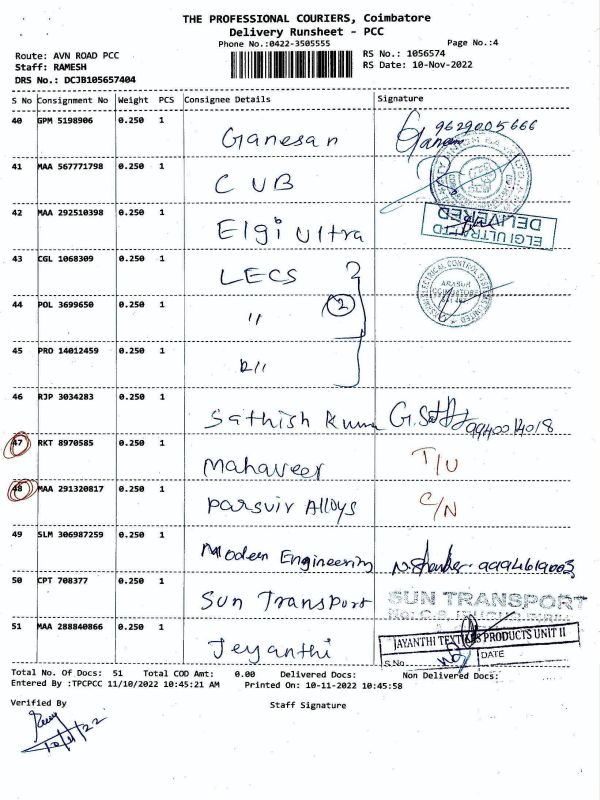 THE PROFESSIONAL COURIERS, Coimbatore
Delivery Runsheet - PCC
Phone No.:0422-3505555
Page No.:4
Route: AVN ROAD PCC
RS No.: 1056574
Staff: RAMESH
RS Date: 10-Nov-2022
DRS No.: DCJB105657404
S No Consignment No Weight PCS Consignee Details Signature
40 GPM 5198906 0.250 1 Ganesan 9629005666
41 MAA 567771798 0.250 1 CUB
42 MAA 292510398 0.250 1 Elgi Ultra
ELGI ULTRA LTD
DELIVERED
43 CGL 1068309 0.250 1 LECS
ELECTRICAL CONTROL SYSTEM
44 POL 3699650 0.250 1 " 2
45 PRO 14012459 0.250 1
46 RJP 3034283 0.250 1 Sathish Kuma
47 RKT 8970585 0.250 1 Mahaveer T/U
48 MAA 291320817 0.250 1 Parsvir Alloys C/N
49 SLM 306987259 0.250 1 Modern Engineering
50 CPT 708377 0.250 1 Sun Transport SUN TRANSPORT
51 MAA 288840866 0.250 1 Jeyanthi
JAYANTHI TEXTILES PRODUCTS UNIT II
S.No DATE
Total No. Of Docs: 51 Total COD Amt: 0.00 Delivered Docs: Non Delivered Docs:
Entered By :TPCPCC 11/10/2022 10:45:21 AM Printed On: 10-11-2022 10:45:58
Verified By
Staff Signature
10/11/22